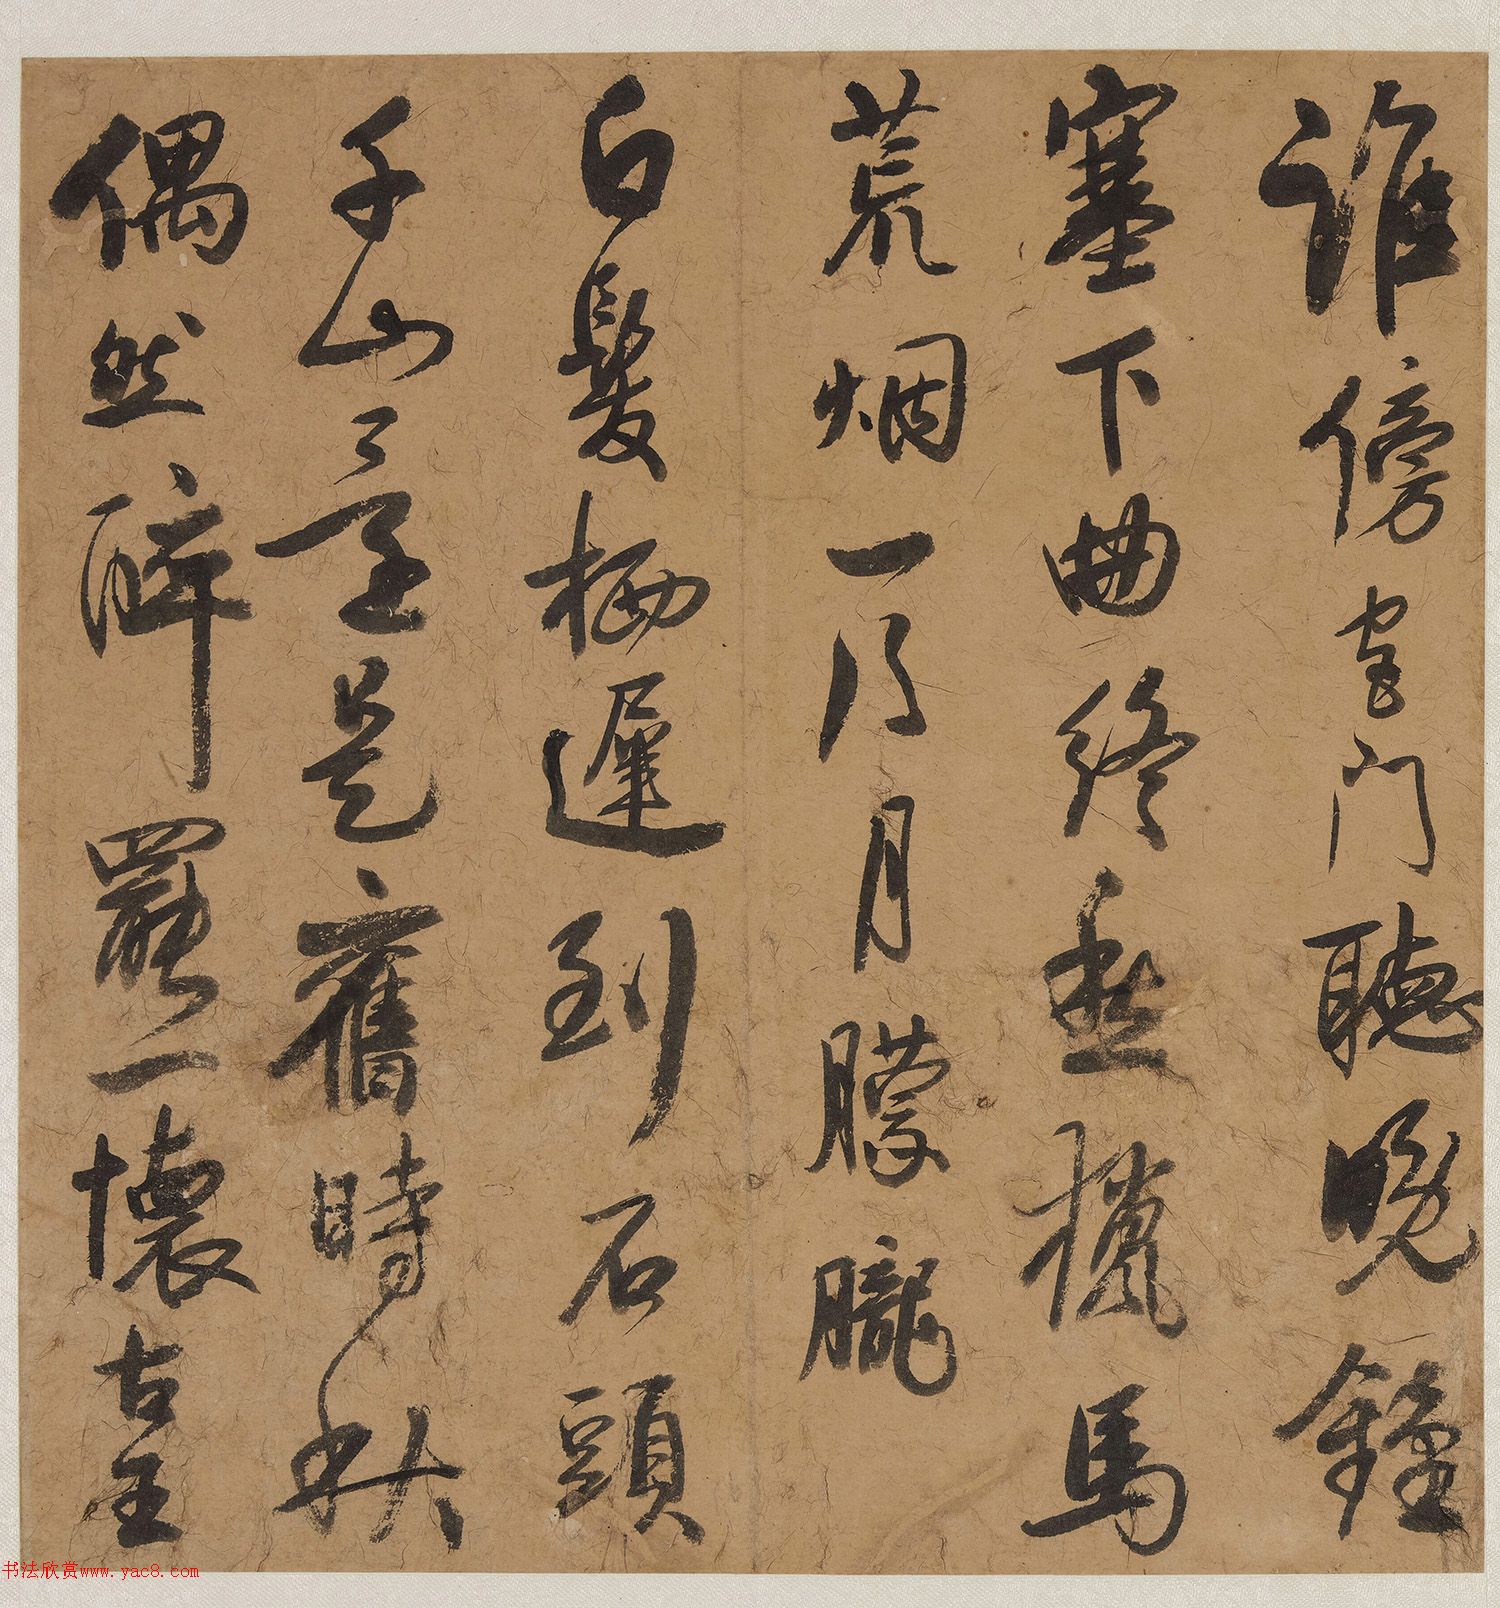 誰傍空門聽晚鐘
塞下曲終愁獵馬
荒烟一片月朦朧
白髮栖遲到石頭
千山是舊時秋
偶然醉罷一懷古
书法欣赏www.yac8.com